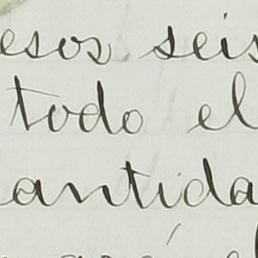 esos seis
todo el
antida